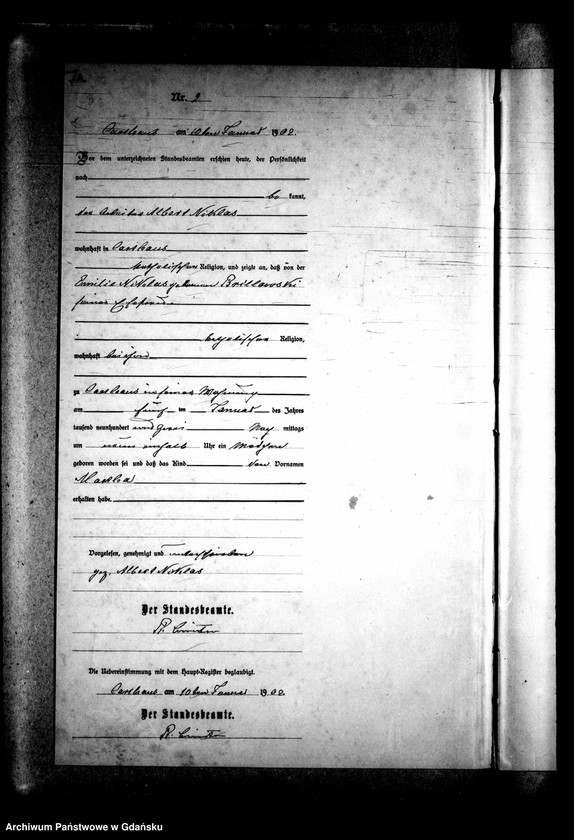 Nr. 2
Carthaus am 10ten Januar 1902.
Vor dem unterzeichneten Standesbeamten erschien heute, der Persönlichkeit
nach
be kannt,
der Arbeiter Albert Niklas
wohnhaft in Carthaus
katholischer Religion, und zeigte an, daß von der
Emilie Niklas geborenen Brillowski
seiner Ehefrau
katholischer Religion,
wohnhaft bei ihm
zu Carthaus in seiner Wohnung
am fünf ten Januar des Jahres
tausend neunhundert und zwei Nach mittags
um neun einhalb Uhr ein Mädchen
geboren worden sei und daß das Kind den Vornamen
Martha
erhalten habe.
Vorgelesen, genehmigt und unterschrieben
gez. Albert Niklas
Der Standesbeamte.
Die Uebereinstimmung mit dem Haupt-Register beglaubigt.
Carthaus am 10ten Januar 1902.
Der Standesbeamte.
R.
Archiwum Państwowe w Gdańsku